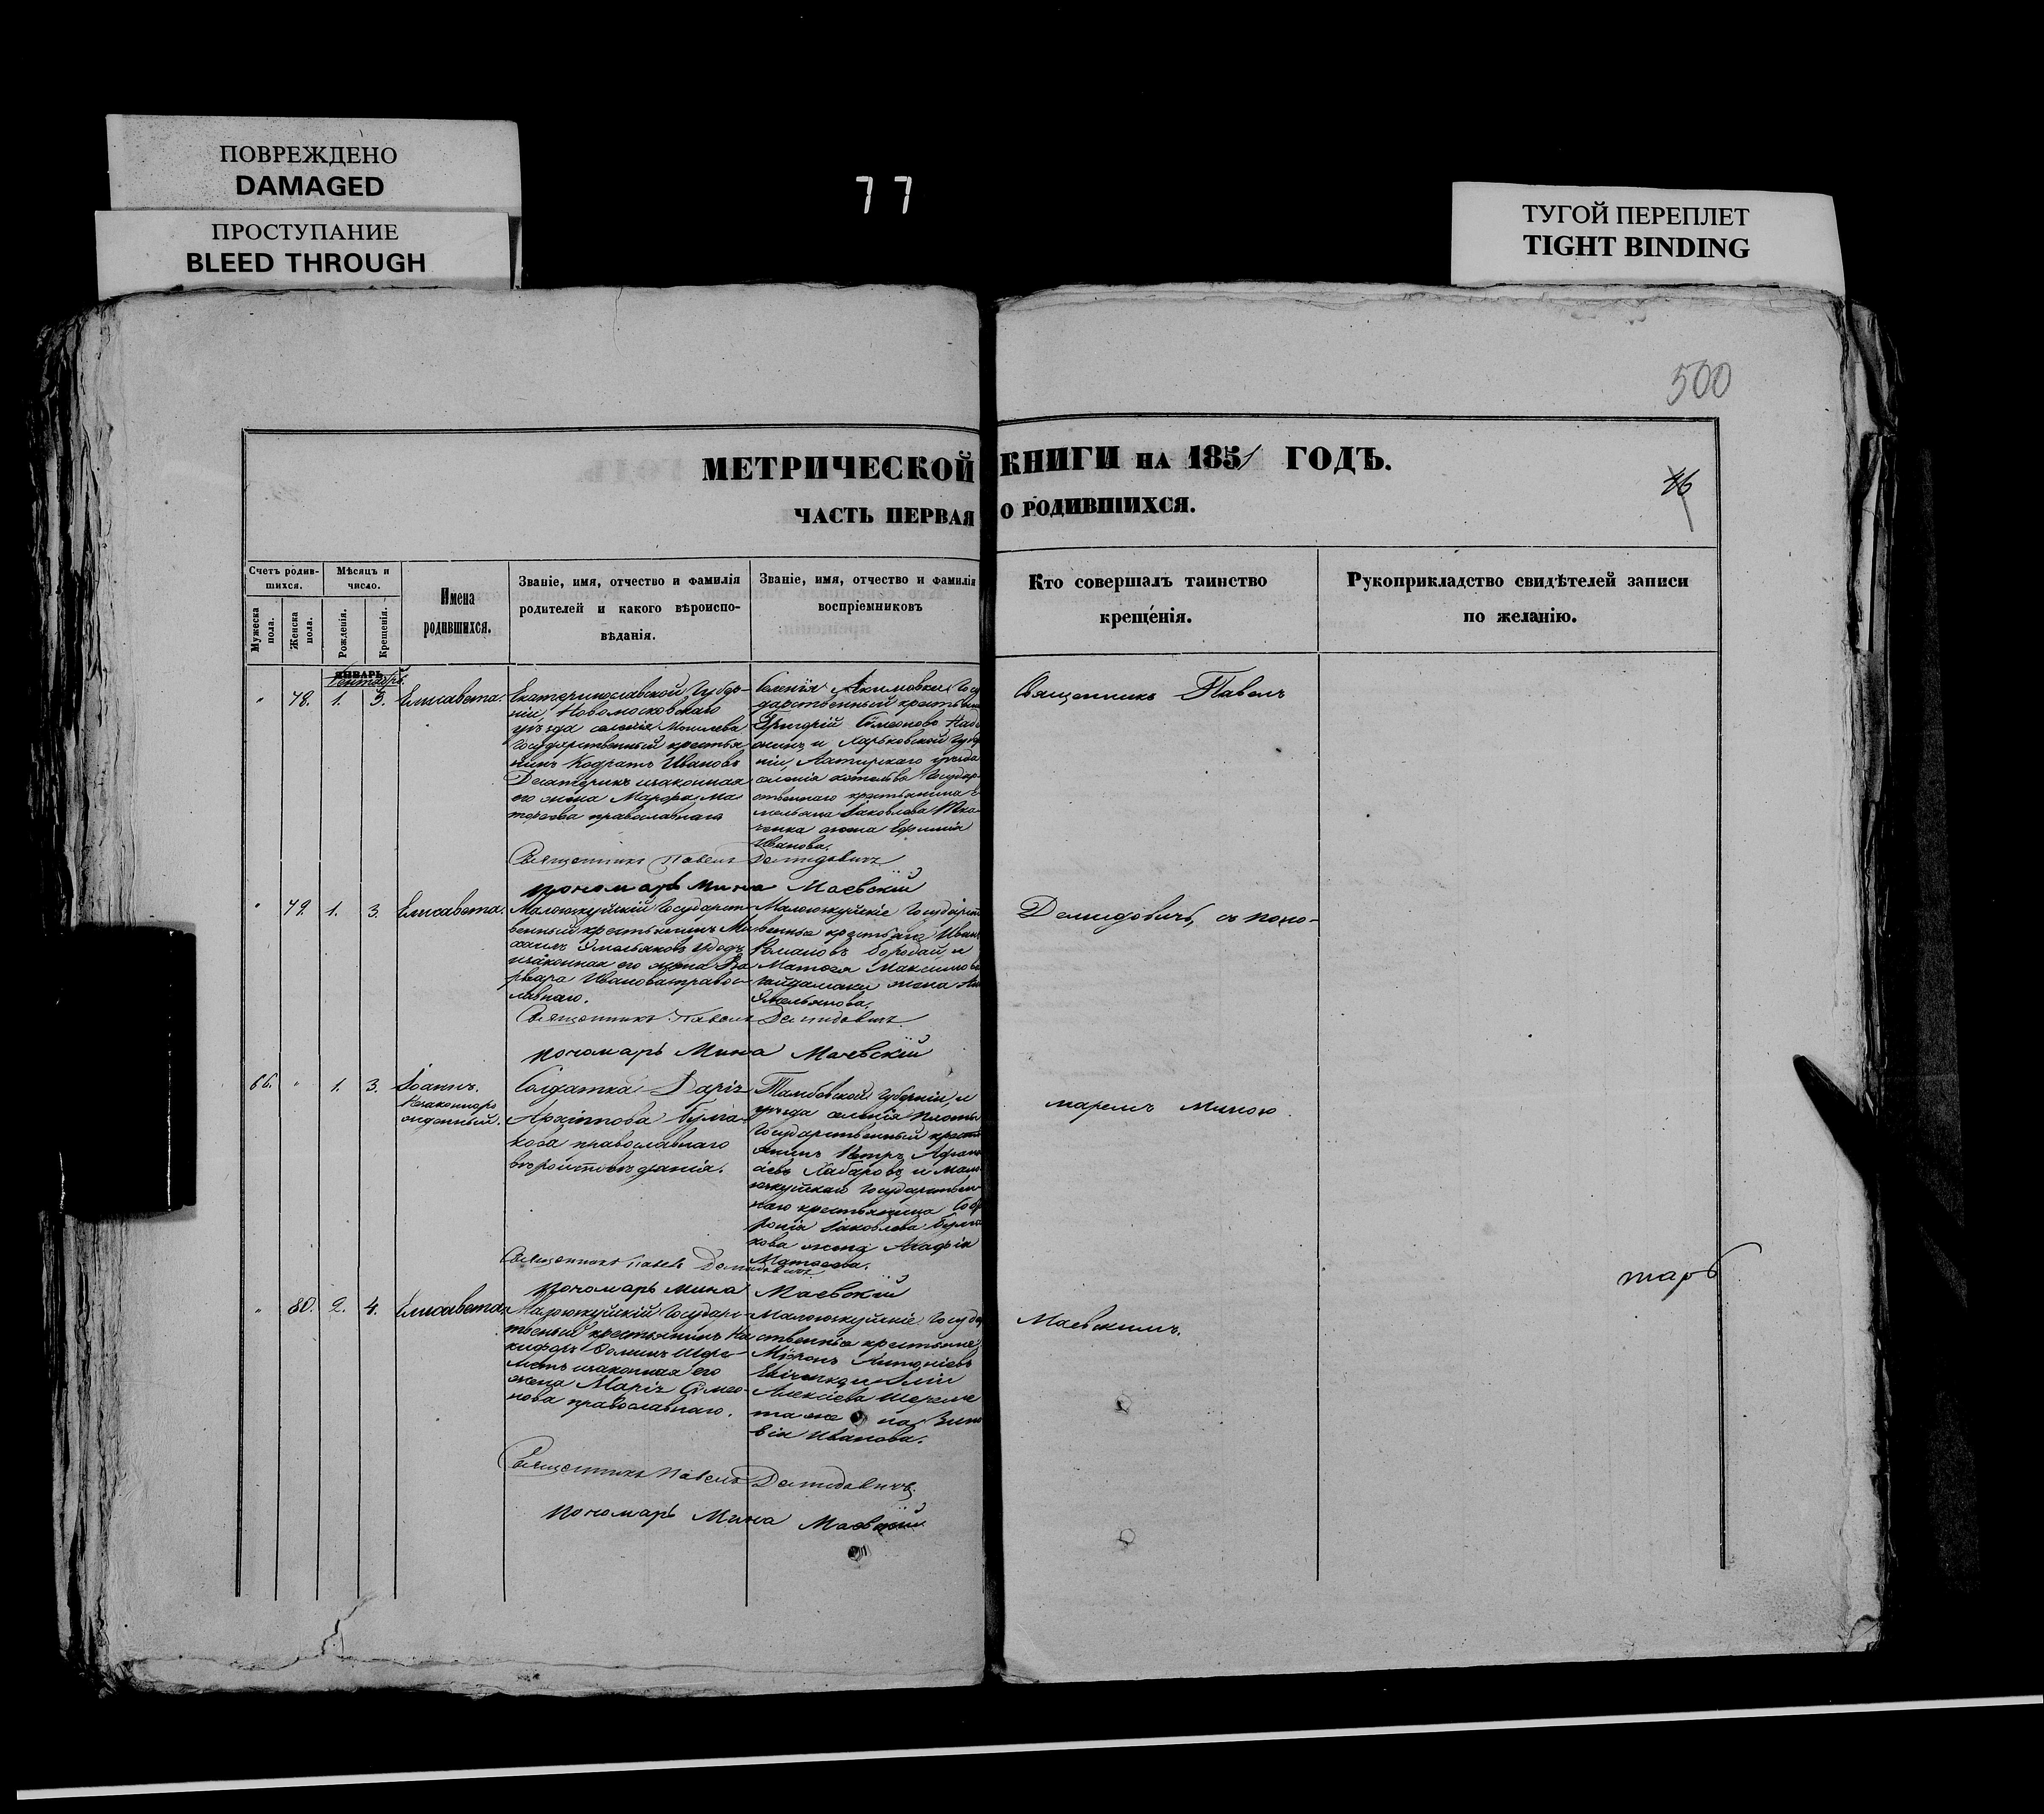 ПОВРЕЖДЕНО
DAMAGED
ПРОСТУПАНИЕ
BLEED THROUGH
77
ТУГОЙ ПЕРЕПЛЕТ
TIGHT BINDING
500
МЕТРИЧЕСКОЙ КНИГИ НА 1851 ГОДЪ.
46
ЧАСТЬ ПЕРВАЯ О РОДИВШИХСЯ.
Счетъ родив-
шихся.
Мужеска пола.
Женска пола.
Мѣсяцъ и
число.
Рожденія.
Крещенія.
Имена
родившихся.
Званіе, имя, отчество и фамилія
родителей и какого вѣроиспо-
вѣданія.
Званіе, имя, отчество и фамилія
воспріемниковъ
Кто совершалъ таинство
крещенія.
Рукоприкладство свидѣтелей записи
по желанію.
ЯНВАРЬ
Сентябрь.
" 78. 1. 3. Елисавета.
Екатеринославской Губер-
ніи, Новомосковскаго
уѣзда селенія Могилева
Государственный крестья-
нинъ Кодратъ Ивановъ
Дехтярикъ изаконная
его жена Марфа Мат
православнаго
Селенія Акимовки Госу
дарственный крестьянинъ
Григорій Сѵмеоновъ
и Харьковской Губер
ніи, Ахтирскаго уѣзда
селенія Котельва Государ-
ственнаго крестьянина Е
мельяна Іаковлева Тка-
ченка жена Ефимія
Иванова.
Священникъ Павелъ Демидовичъ
Пономарь Мина Маевскій
" 79. 1. 3. Елисавета.
Малоюкуйскій Государст-
венный крестьянинъ Ми
хаилъ Эмельяновъ
изаконная его жена Ва
рвара Иванова правос-
лавнаго.
Малоюкуйскіе Государст
венные крестьяне Иванъ
Романовъ Бородай, и
Матвея Максимова
Гайдамаки жена
Эмельянова.
Священникъ Павелъ Демидовичъ.
Пономарь Мина Маевскій
66. " 1. 3. Іоаннъ.
Незаконнорo
жденный.
Солдатка Дарія
Архіппова Булга-
кова православнаго
вѣроисповѣданія.
Тамбовской Губерніи, и
уѣзда селенія
Государственный кресть
янинъ Петръ Афана
сіевъ Хабаровъ, и мало
юкуйскаго Государствен
наго крестьянина Соф
ронія Іаковлева Булга
кова жена Агафія
Матвеева.
Священникъ Павелъ Демидовичъ
Пономарь Мина Маевскій
" 80. 2. 4. Елисавета.
Малоюкуйскій Государс-
твеный крестьянинъ Ни
кифоръ Фоминъ Шере-
метъ изаконная его
жена Марія Сімео-
нова православнаго.
Малоюкуйскіе Госуда
ственные крестьяне:
Мѵронъ Антоніевъ
и Иліи
Алексіева Шереме
та жена Зино
вія Иванова.
Священникъ Павелъ Демидовичъ
Пономарь Мина Маевскій
Священникъ Павелъ
Демидовичъ, съ поно-
маремъ Миною
Маевскимъ.
тарь